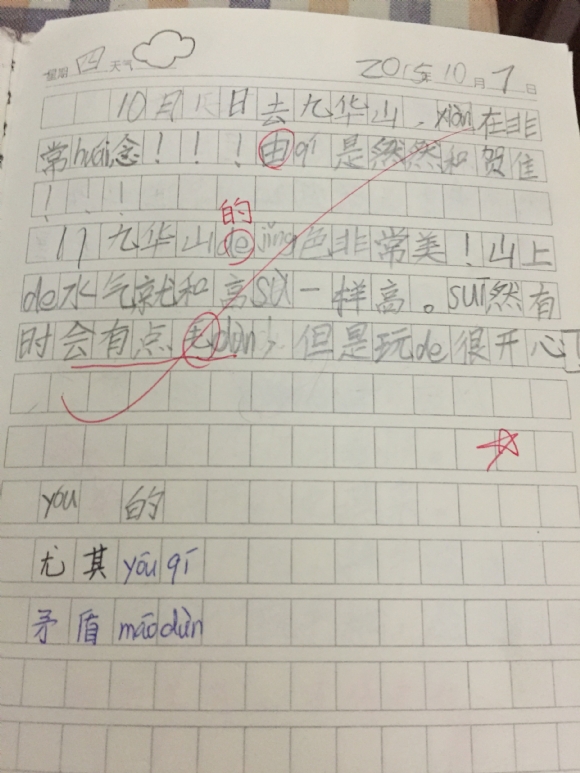 星期四天气 2015年10月7日
10月1日去九华山，xiàn在非
常huái念！！！由qí是然然和贺佳
！！！
的
九华山de jǐng色非常美！山上
de水气就和高sù一样高。suī然有
时会有点毛dùn，但是玩de很开心！
yóu 的
尤其yóu qí
矛盾máo dùn